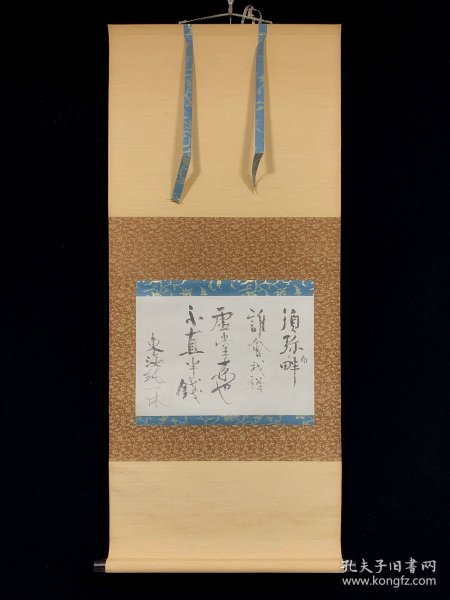 須弥南畔
誰會我禅
虚堂来也
不直半銭
東海純一休
孔夫子旧书网
www.kongfz.com